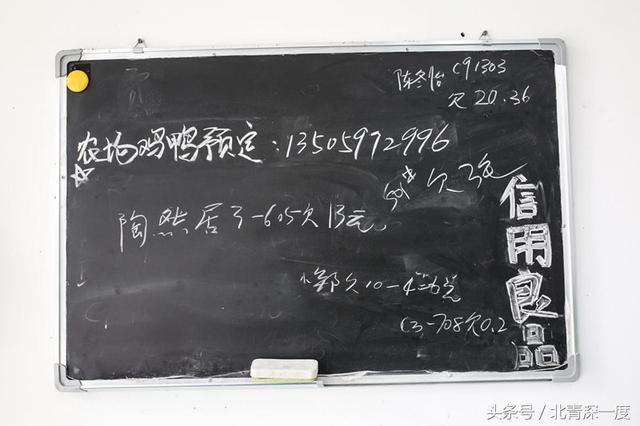 陈冬怡 C91303
欠20.36
农场鸡鸭预定:13505972996
欠3元
陶然居3-605欠13元
小郑欠10-4
C3-708欠0.2
信用良品
头条号 / 北青深一度